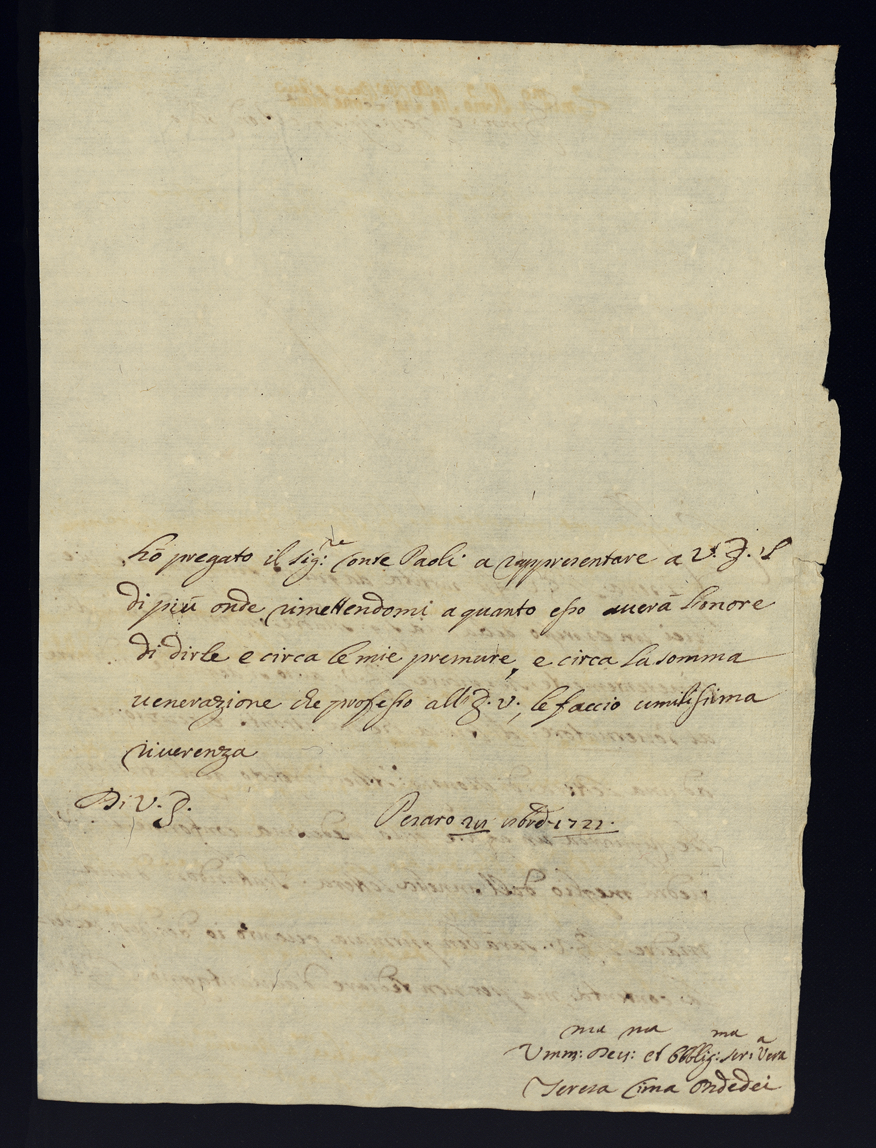 hò pregato il Sig:re Conte Paoli a rappresentare a V. E. il
di più onde rimettendomi a quanto esso auerà l'onore
di dirle e circa le mie premure, e circa la somma
uenerazione che professo all'E. V., le faccio umilissima
riuerenza
Di V. E. Pesaro 1721.
Umm:ma Deu:ma et Obblig:ma Ser:a Vera
Teresa Cima Ondedei